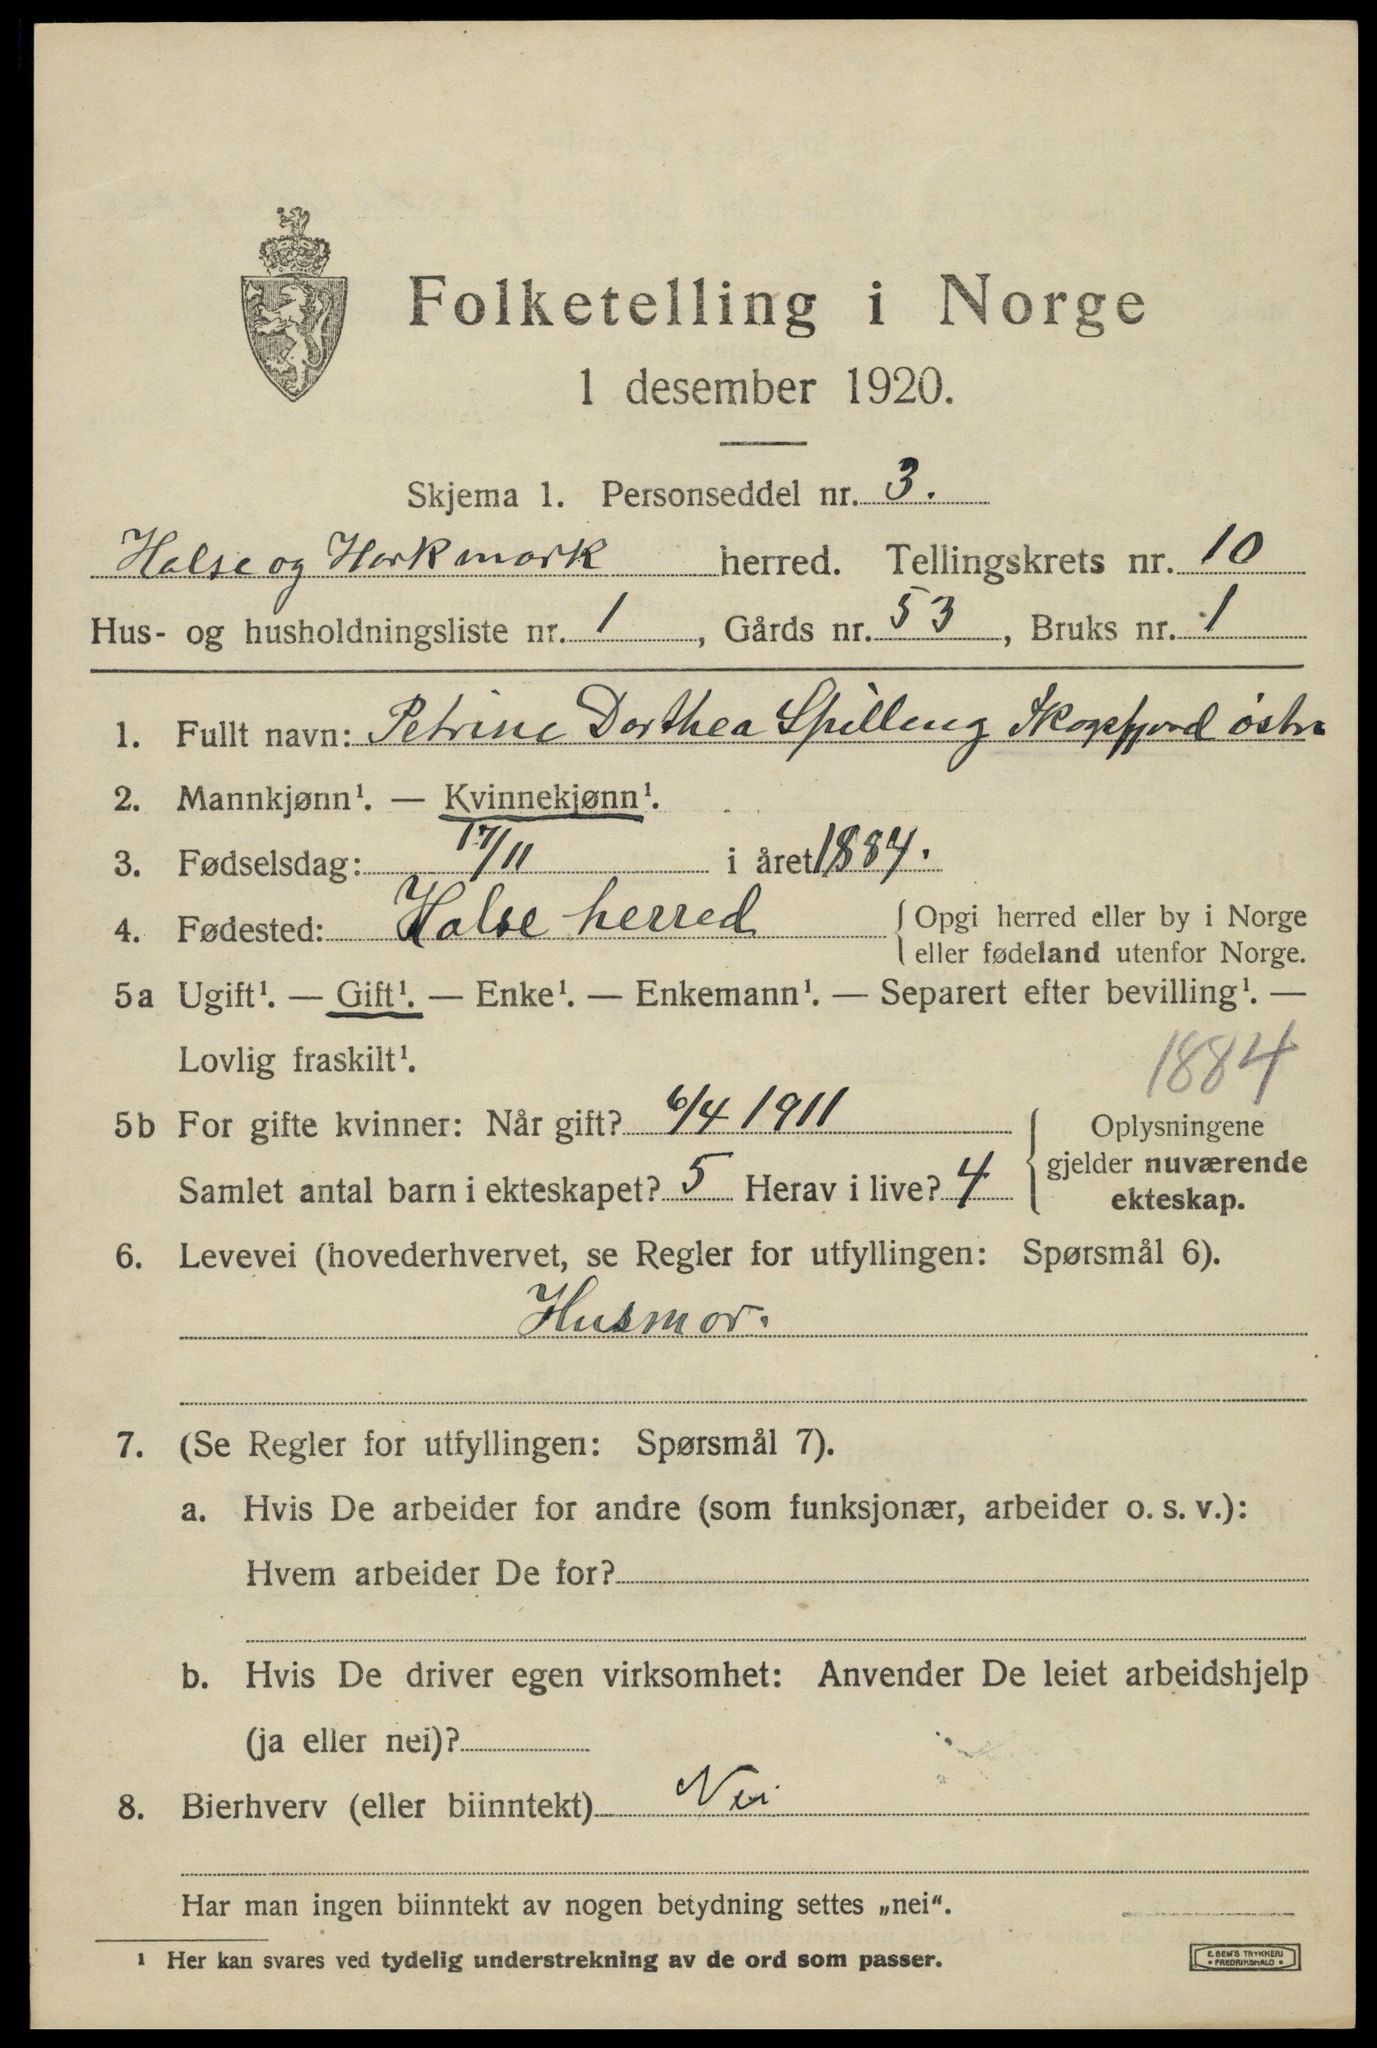 Folketelling i Norge
1 desember 1920.
Skjema 1. Personseddel nr. 3.
Halse og Harkmark herred. Tellingskrets nr. 10
Hus- og husholdningsliste nr. 1, Gårds nr. 53, Bruks nr. 1
1. Fullt navn: Petrine Dorthea Spilling Skogsfjord østre
2. Mannkjønn¹. — Kvinnekjønn¹.
3. Fødselsdag: 17/11 i året 1884.
4. Fødested: Halse herred { Opgi herred eller by i Norge
eller fødeland utenfor Norge.
5a Ugift¹. — Gift¹. — Enke¹. — Enkemann¹. — Separert efter bevilling¹. —
Lovlig fraskilt¹.
1884
5b For gifte kvinner: Når gift? 6/4 1911
Samlet antal barn i ekteskapet? 5 Herav i live? 4
Oplysningene
gjelder nuværende
ekteskap.
6. Levevei (hovederhvervet, se Regler for utfyllingen: Spørsmål 6).
Husmor.
7. (Se Regler for utfyllingen: Spørsmål 7).
a. Hvis De arbeider for andre (som funksjonær, arbeider o. s. v.):
Hvem arbeider De for?
b. Hvis De driver egen virksomhet: Anvender De leiet arbeidshjelp
(ja eller nei)?
8. Bierhverv (eller biinntekt) Nei
Har man ingen biinntekt av nogen betydning settes „nei“.
¹ Her kan svares ved tydelig understrekning av de ord som passer.
E. SEM'S TRYKKERI
• FREDRIKSHALD •